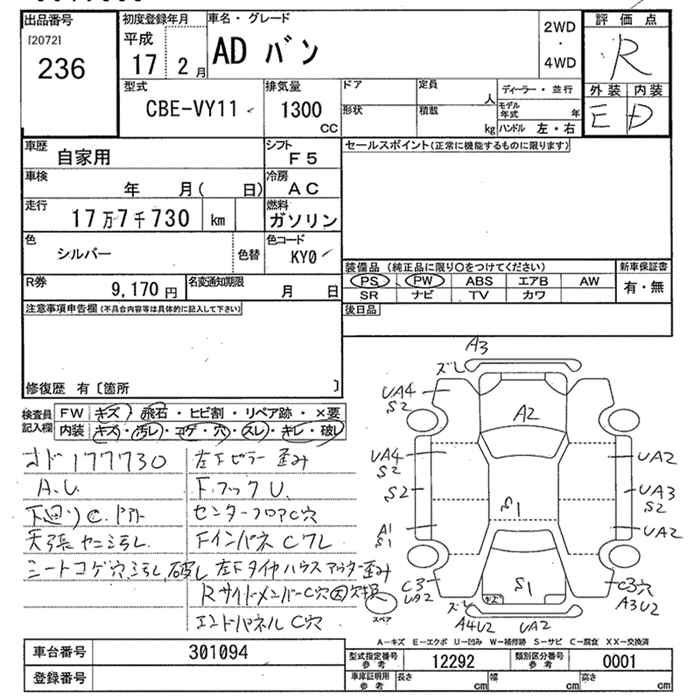 出品番号 初度登録年月 車名・グレード 評価点
[2072] 平成 2WD
236 17 2月 AD バン ・ R
4WD
型式 排気量 ドア 定員 人 ディーラー・並行 外装 内装
CBE-VY11 1300 CC 形状 積載 kg モデル年式 年 E D
ハンドル 左・右
車歴 自家用 シフト F5 セールスポイント(正常に機能するものに限ります)
車検 年 月( 日) 冷房 AC
走行 17万7千730 km 燃料 ガソリン
色 シルバー 色替 色コード KY0
装備品 (純正品に限り○をつけてください) 新車保証書
PS PW ABS エアB AW 有・無
SR ナビ TV カワ
R券 9,170円 名変通知期限 月 日
後日品
注意事項申告欄(不具合内容等は具体的に記入して下さい)
修復歴 有〔箇所 〕
検査員記入欄 FW キズ・飛石・ヒビ割・リペア跡・×要
内装 キズ・汚レ・コゲ・穴・スレ・キレ・破レ
オド177730 左Fピラー歪み
A.U. FフックU.
下廻りC. センターフロアC穴
天張ヤニ汚レ FインパネCワレ
シートコゲ穴,汚レ,破レ 左Fタイヤハウスアウター歪み
RサイドメンバーC穴
エンドパネルC穴
A3
ズレ
UA4
S2
A2
UA4
S2
UA2
S2
S1
UA3
S2
A1
S1
UA2
C3
UA2
S1
C3穴
A3U2
ズレ
A4U2 UA2
スペア
A-キズ E-エクボ U-凹み W-補修跡 S-サビ C-腐食 XX-交換済
車台番号 301094 型式指定番号参考 12292 類別区分番号参考 0001
登録番号 車庫証明用参考 長さ cm 幅 cm 高さ cm